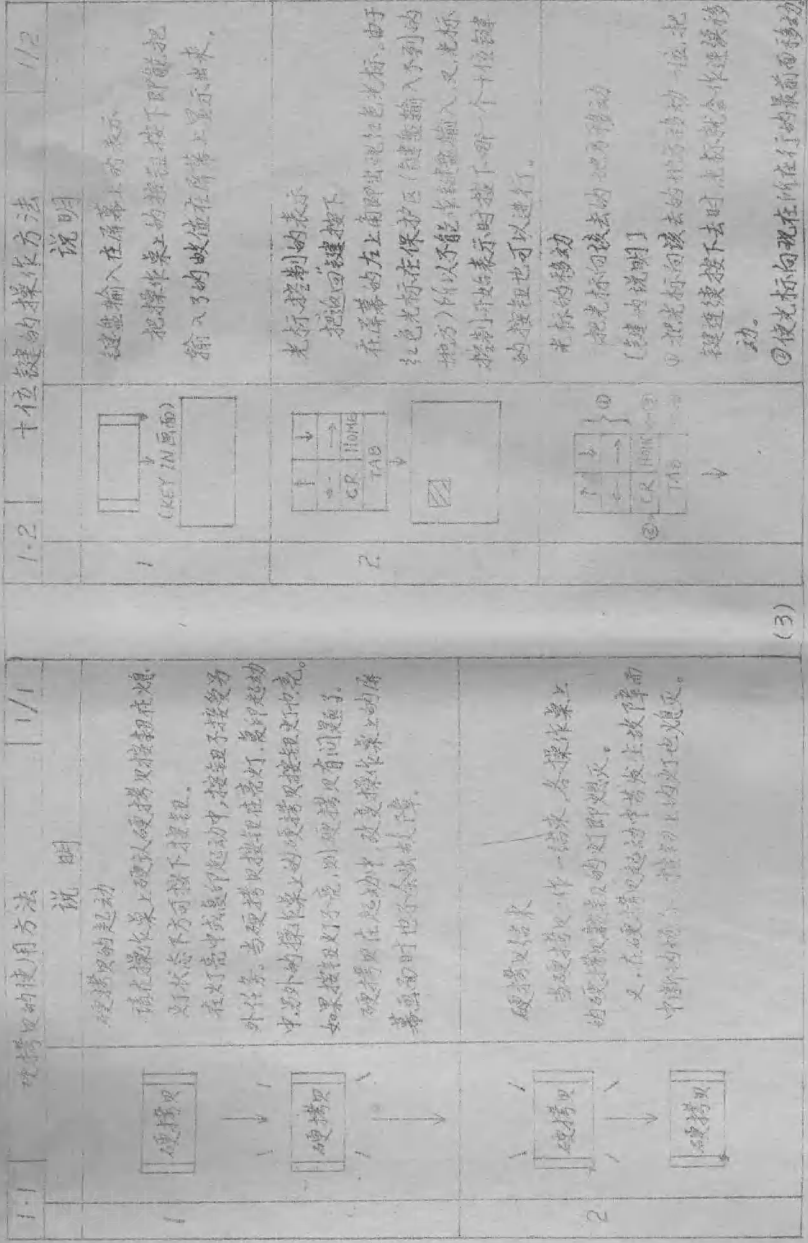 1-1 硬拷贝的使用方法 1/1
说 明
1
硬拷贝
硬拷贝
硬拷贝的起动
请在操作桌上确认硬拷贝按钮在熄
灯状态下方可按下按钮。
在灯亮中或复印起动中,按钮不接受另
外任务。当硬拷贝按钮在亮灯,复印起动
中,另外的操作桌上的硬拷贝按钮灯也亮。
如果按钮灯不亮,则硬拷贝有问题了。
硬拷贝在起动中,改变操作桌上的屏
幕画面时也不会出故障。
2
硬拷贝
硬拷贝
硬拷贝结束
当硬拷贝工作一结束,各操作桌上
的硬拷贝按钮的灯即熄灭。
又,在硬拷贝起动中若发生故障而
中断的场合,按钮上的灯也熄灭。
(3)
1-2 十位键的操作方法 1/2
说 明
1
(KEY IN画面)
键盘输入在屏幕上的表示
把操作桌上的按钮按下即能把
输入了的数值在屏幕上显示出来。
2.
↑ ↓
← →
CR HOME
TAB
光标控制的表示
把返回键按下
在屏幕的左上角即出现红色光标,由于
红色光标在保护区(键盘输入不到的
地方)所以不能作键盘输入,又,光标
控制开始表示时按下哪一个十位键
的按钮也可以进行。
↑ ↓
← →
CR HOME
TAB
① ②
光标的移动
把光标向该去的地方移动
[键的说明]
① 把光标向该去的地方移动一位,把
键连续按下去时,光标就会作连续移
动。
②使光标向现在所在行的最前面移动